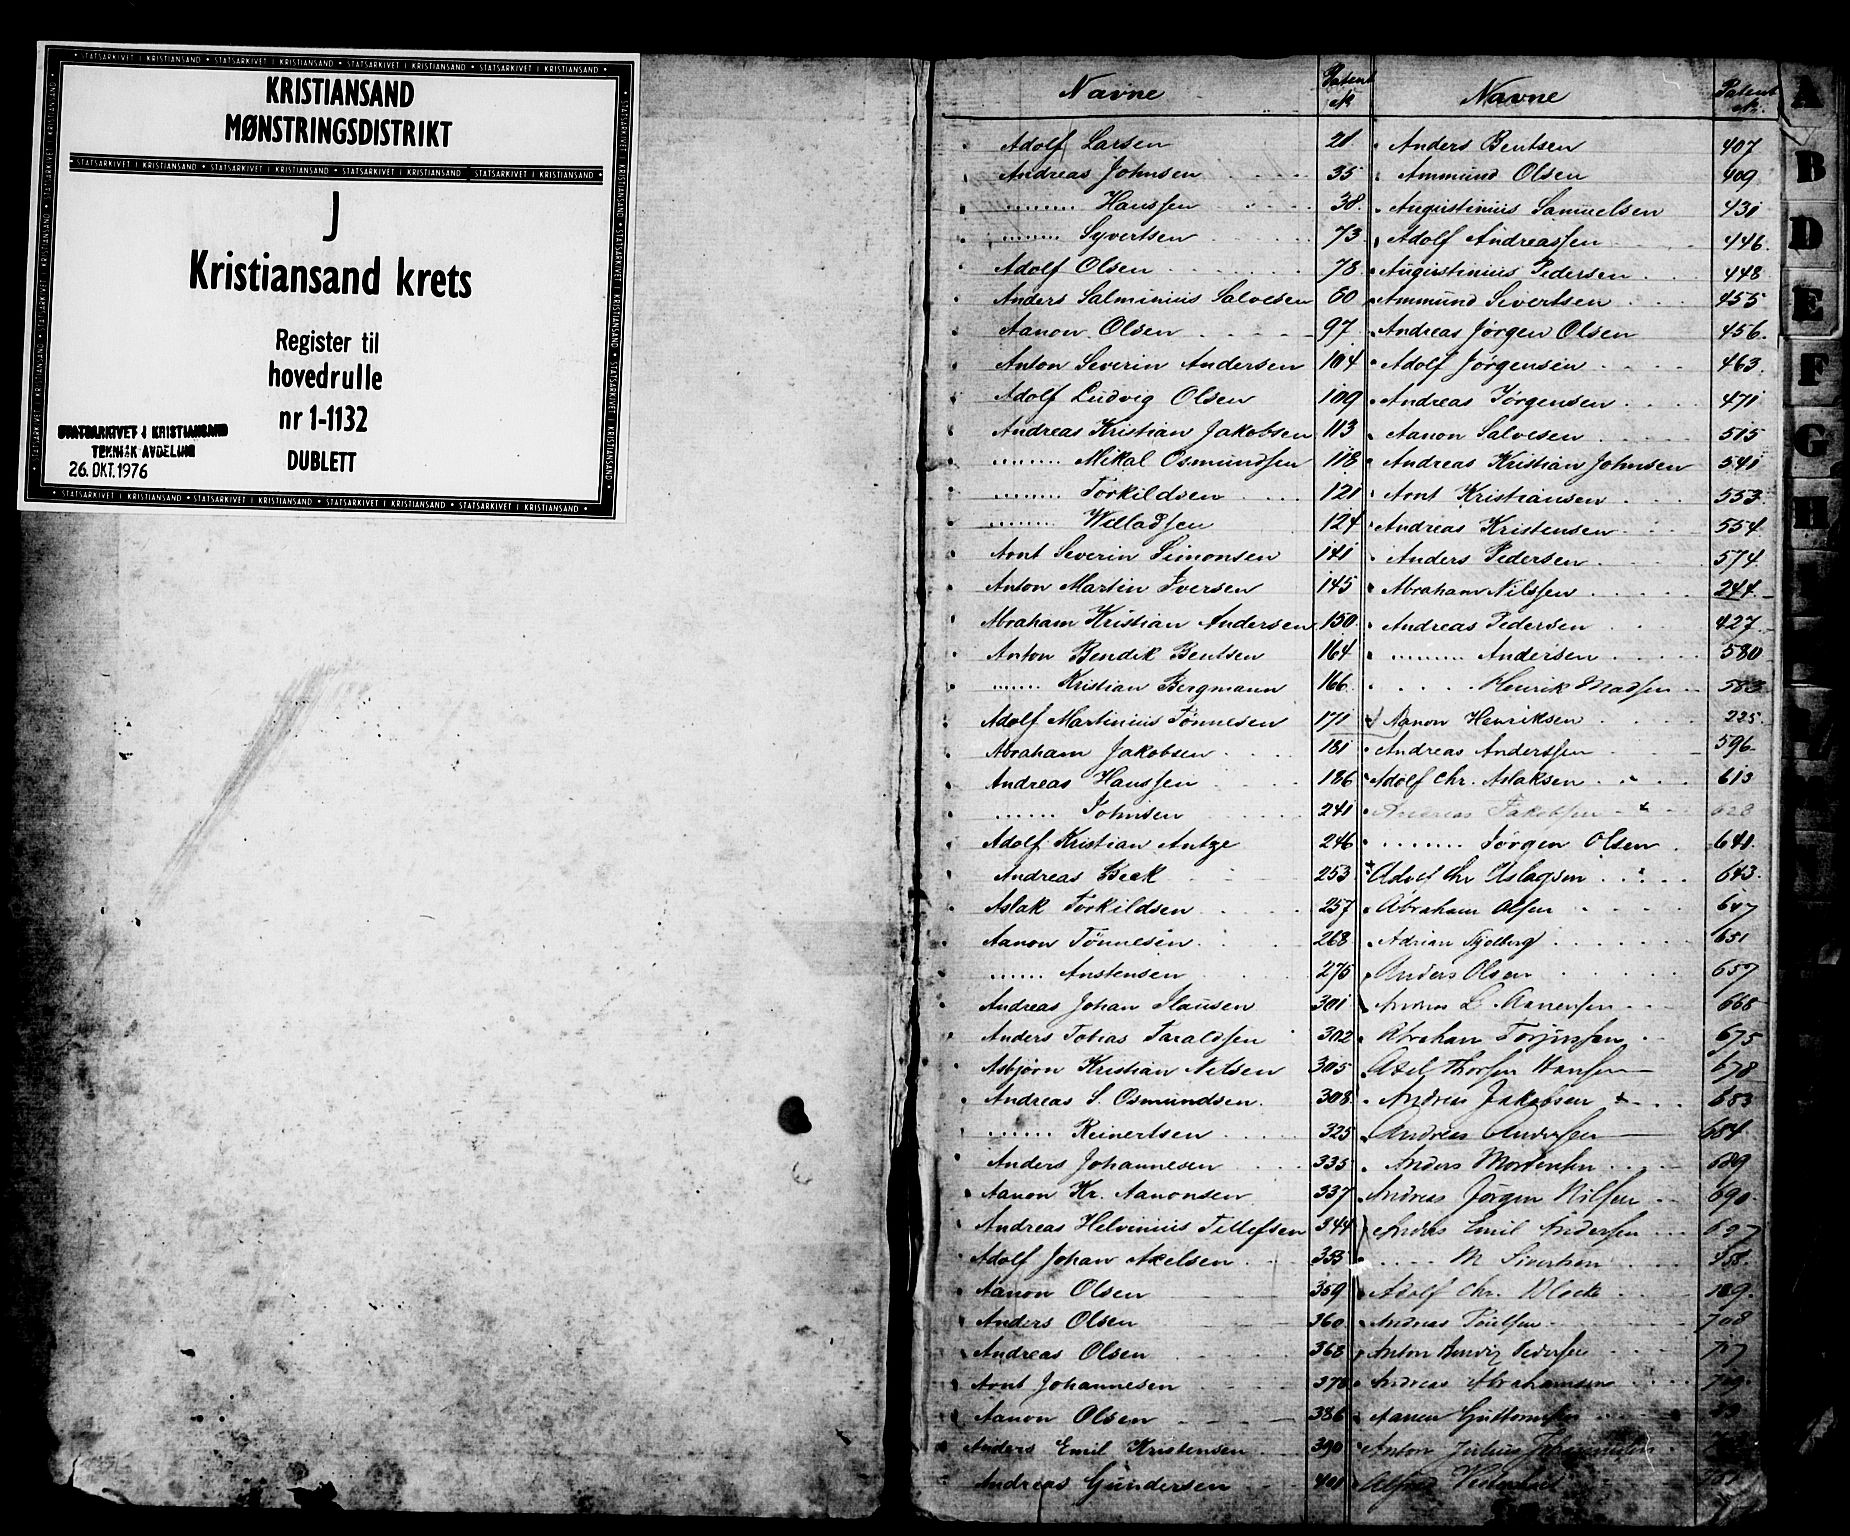 KRISTIANSAND
MØNSTRINGSDISTRIKT
J
Kristiansand krets
Register til
hovedrulle
nr 1-1132
DUBLETT
STATSARKIVET I KRISTIANSAND
TEKNISK AVDELING
26. OKT. 1976
Navne Patent №
Adolf Larsen 21
Andreas Johnsen 35
........ Hanssen 38
........ Syvertsen 73
Adolf Olsen 78
Anders Salminius Salvesen 60
Aanon Olsen 97
Anton Severin Andersen 104
Adolf Ludvig Olsen 109
Andreas Kristian Jakobsen 113
........ Mikal Osmundsen 118
........ Torkildsen 121
........ Willadsen 124
Arnt Severin Simonsen 141
Anton Martin Iversen 145
Abraham Kristian Andersen 150
Anton Bendik Bentsen 164
....... Kristian Bergmann 166
Adolf Martinius Tønnesen 171
Abraham Jakobsen 181
Andreas Hanssen 186
...... Johnsen 241
Adolf Kristian Antze 246
Andreas Beck 253
Aslak Torkildsen 257
Aanon Tønnesen 268
...... Anstensen 275
Andreas Johan Clausen 301
Anders Tobias Taraldsen 302
Asbjørn Kristian Nilsen 305
Andreas S. Osmundsen 308
...... Reinertsen 325
Anders Johannesen 335
Aanon Kr. Aanonsen 337
Andreas Helvinius Tellefsen 344
Adolf Johan Axelsen 353
Aanon Olsen 359
Anders Olsen 360
Andreas Olsen 368
Arnt Johannesen 378
Aanon Olsen 386
Anders Emil Kristensen 390
Andreas Gundersen 401
Navne Patent №
Anders Bentsen 407
Ammund Olsen 409
Augustinius Samuelsen 431
Adolf Andreassen 446
Augustinius Pedersen 448
Ammund Sivertsen 455
Andreas Jørgen Olsen 456
Adolf Jørgensen 463
Andreas Jørgensen 471
Aanon Salvesen 515
Andreas Kristian Johnsen 541
Arnt Kristiansen 553
Andreas Kristensen 554
Anders Pedersen 574
Abraham Nilssen 244
Andreas Pedersen 427
......... Andersen 580
..... Henrik Madsen 583
Aanon Henriksen 225
Andreas Anderssen 596
Adolf Chr. Aslaksen 613
Andreas Jakobsen 628
........ Jørgen Olsen 641
Adolf Chr Aslagsen 643
Abraham Olsen 647
Adrian 651
Anders Olsen 657
Aanensen 668
Abraham 675
Axel Thorsen Hansen 678
Andreas Jakobsen 683
Andreas Andersen 684
Anders Mortensen 689
Andreas Jørgen Nilsen 690
Anders Emil Andersen 697
..... M Sivertsen
Adolf Chr.
Andreas 708
Anton Ludvig Pedersen
Andreas Abrahamsen
Aanen Guttormsen
Anton Julius Johannesen
Alfred
A
B
D
E
F
G
H